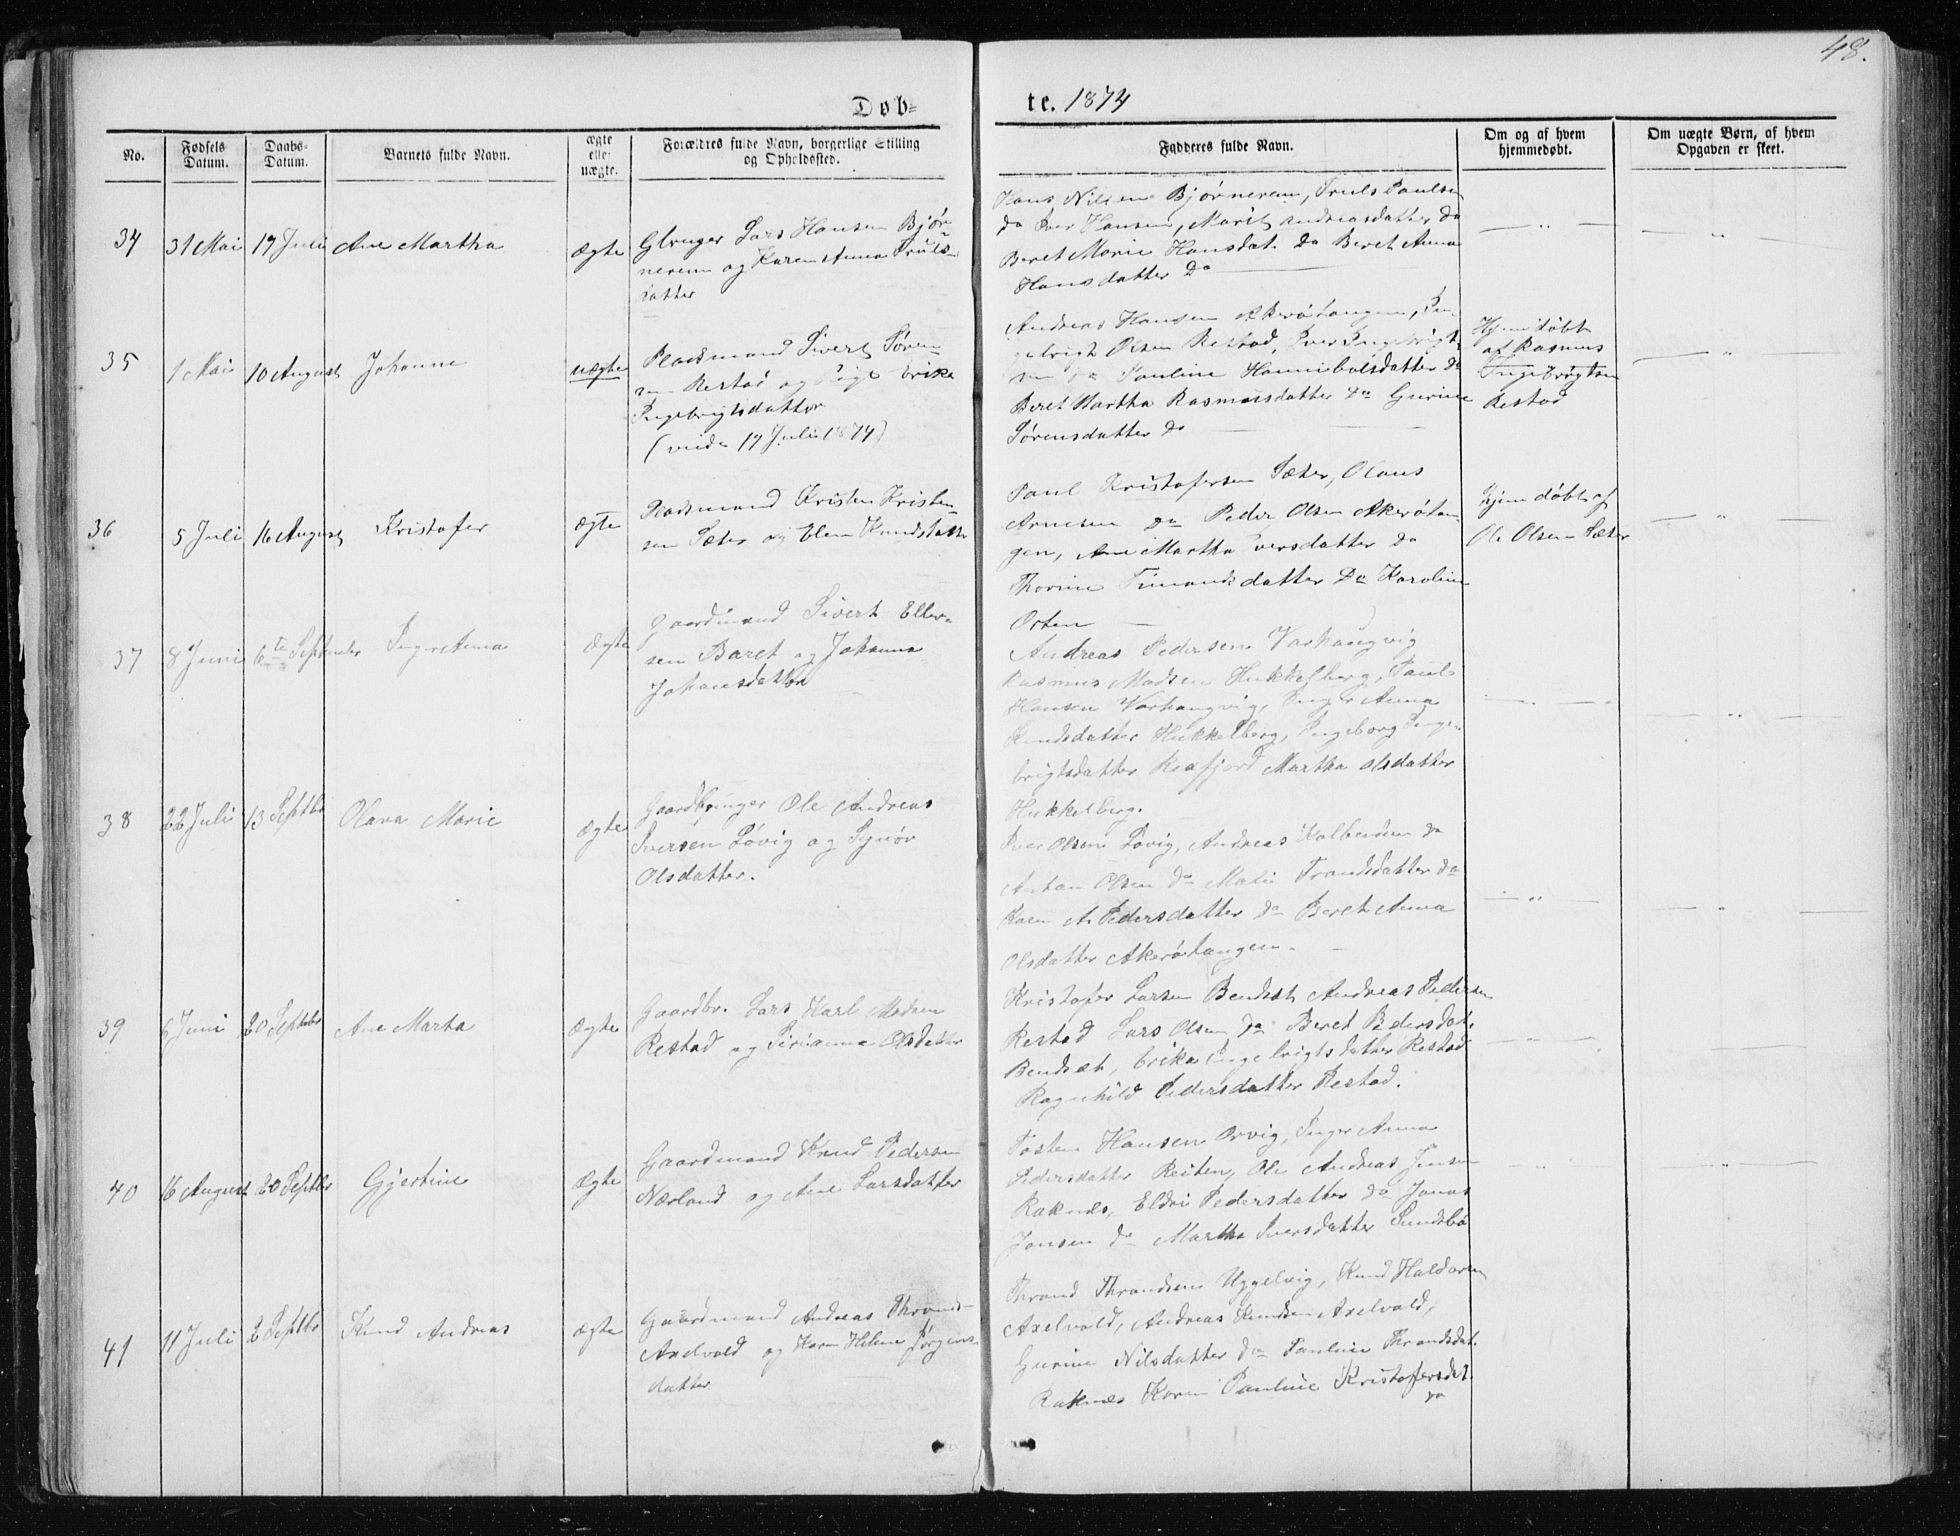 48.
Døb-
te. 1874
No.
Fødsels
Datum.
Daabs-
Datum.
Barnets fulde Navn.
ægte
eller
uægte.
Forældres fulde Navn, borgerlige Stilling
og Opholdssted.
Fadderes fulde Navn.
Om og af hvem
hjemmedøbt.
Om uægte Børn, af hvem
Opgaven er skeet.
34
31 Mai
19 Juli
Ane Martha
ægte
Lars Hansen Bjør-
nerem og Karen Anna Truls-
datter
Hans Nilsen Bjørnerem, Truls Paulsen
do Iver Hansen, Marit Andreasdatter do
Beret Marie Hansdat. do Beret Anna
Hansdatter do
35
1 Mai
10 August
Johanne
uægte
Pladsmand Sivert Søren-
sen Restad og Pige Erika
Ingebrigtsdatter
(viede 19 Juli 1874)
Andreas Hansen Akerøtangen, In-
gebrigt Olsen Restad, Iver Ingebrigt-
sen do Pauline Hannibalsdatter do
Beret Martha Rasmusdatter do Gurine
Sørensdatter do
Hjemdøbt
af Rasmus
Ingebrigtsen
Restad
36
5 Juli
16 August
Kristofer
ægte
Pladsmand Kristen Kristen-
sen Sæter og Elen Knudsdatter
Paul Kristofersen Sæter, Olaus
Arnesen do Peder Olsen Akerøtan-
gen, Ane Martha Iversdatter do
Thorine Simonsdatter do Karoline
Orten
hjemdøbt af
Ole Olsen Sæter
37
8 Juni
6te September
Inger Anna
ægte
Gaardmand Sivert Ellev-
sen Baret og Johanna
Johansdatter
Andreas Pedersen Varhaugvig
Rasmus Madsen Hukkelberg, Paul
Hansen Varhaugvig, Inger Anna
Knudsdatter Hukkelberg, Ingeborg Inge-
brigtsdatter Reafjord Martha Olsdatter
Hukkelberg.
38
22 Juli
13 Septbr
Olava Marie
ægte
Gaardbruger Ole Andreas
Iversen Løvig og Synøv
Olsdatter.
Iver Olsen Løvig, Andreas Kolbensen do
Anton Olsen do Mali Trondsdatter do
Karen A. Pedersdatter do Beret Anna
Olsdatter Akerøtangen.
39
6 Juni
20 Septbr
Ane Marta
ægte
Gaardbr. Lars Karl Madsen
Restad og Sirianna Olsdatter
Kristofer Larsen Bendset Andreas Pedersen
Restad Lars Olsen do Beret Pedersdat.
Bendset, Erika Ingebrigtsdatter Restad
Ragnhild Pedersdatter Restad.
40
16 August
20 Septbr
Gjertine
ægte
Gaardmand Knud Pedersen
Nærland og Ane Larsdatter
Tosten Hansen Orvig, Inger Anna
Pedersdatter Reiten, Ole Andreas Jensen
Raknes, Eldri Pedersdatter do Jonas
Jonsen do Martha Iversdatter Sundsbø
41
11 Juli
2 Septbr
Knud Andreas
ægte
Gaardmand Andreas Thronds-
Axelvold og Karen Helene Jørgens-
datter
Thrond Throndsen Uggelvig, Knud Haldorsen
Axelvold, Andreas Knudsen Axelvold,
Gurine Nilsdatter do Pauline Throndsdat.
Raknes Karen Pauline Kristofersdat.
do